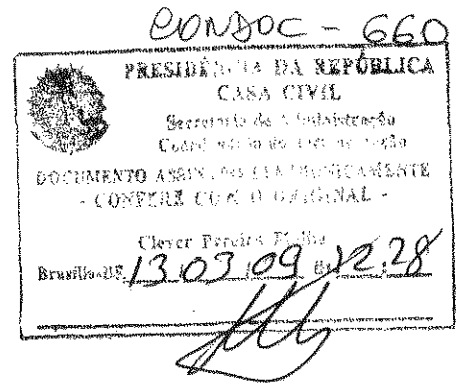 CONDOC - 660
PRESIDÊNCIA DA REPÚBLICA
CASA CIVIL
Secretaria de Administração
de
DOCUMENTO ASSINADO ELETRONICAMENTE
- CONFERE COM O ORIGINAL -
Clever Pereira
Brasília-DF, 13/03/09 às 12:28